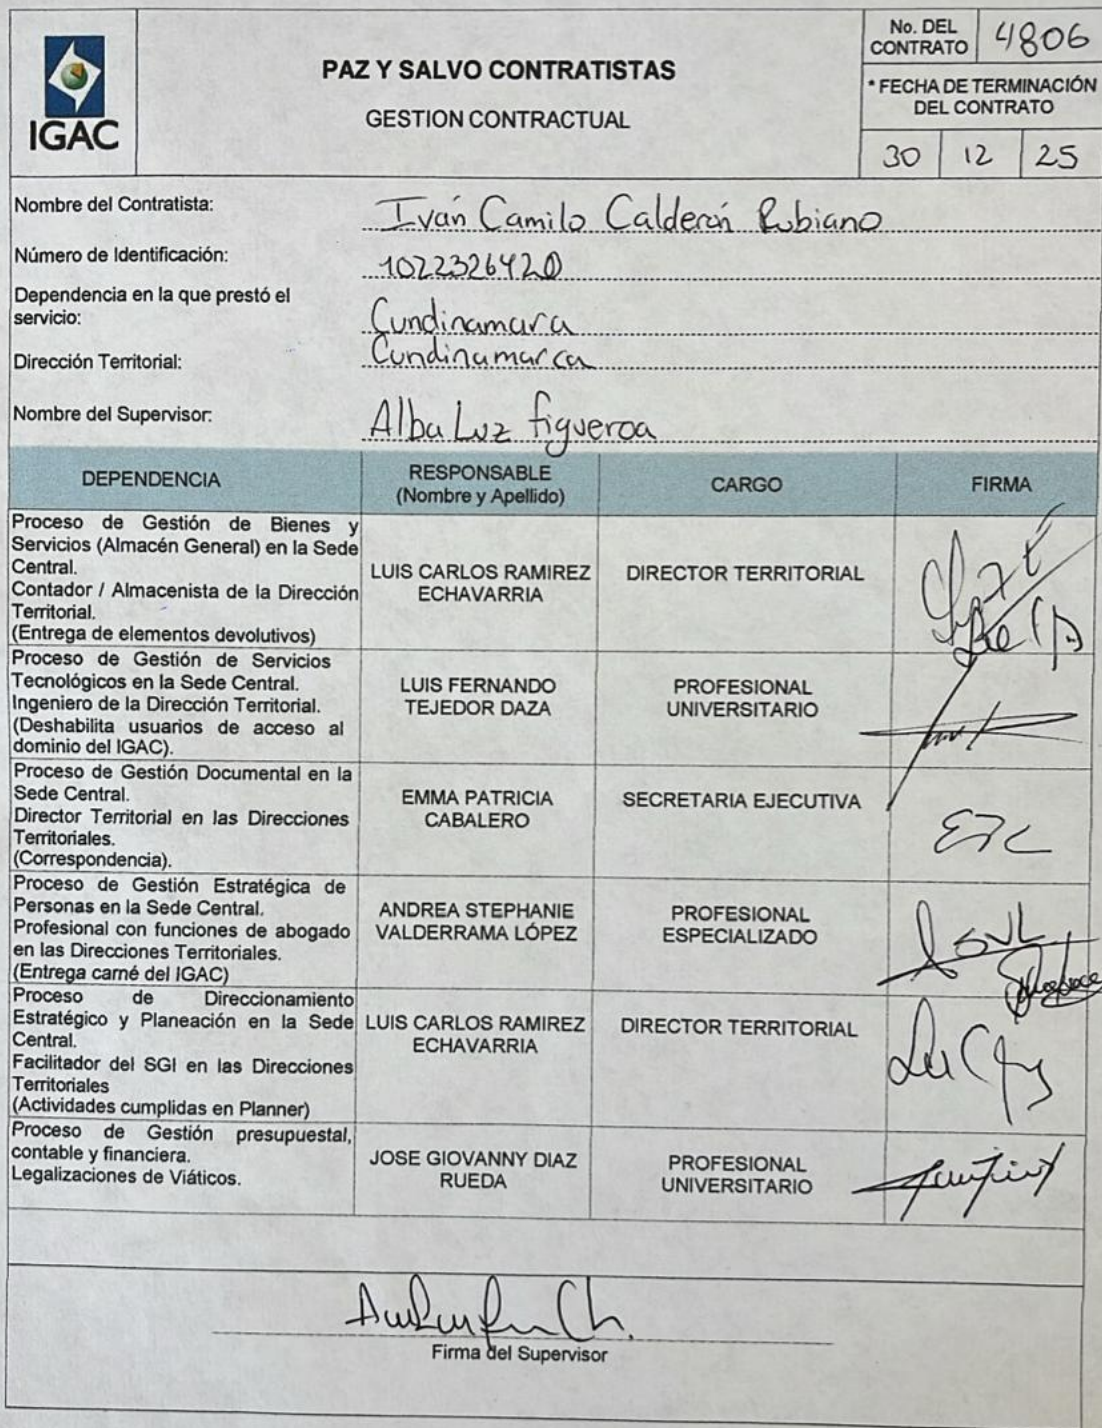 IGAC
PAZ Y SALVO CONTRATISTAS
GESTION CONTRACTUAL
No. DEL
CONTRATO
4806
* FECHA DE TERMINACIÓN
DEL CONTRATO
30 12 25
Nombre del Contratista: Iván Camilo Calderón Rubiano
Número de Identificación: 1022326420
Dependencia en la que prestó el
servicio:
Cundinamara
Dirección Territorial: Cundinamarca
Nombre del Supervisor: Alba Luz figueroa
DEPENDENCIA
RESPONSABLE
(Nombre y Apellido)
CARGO
FIRMA
Proceso de Gestión de Bienes y
Servicios (Almacén General) en la Sede
Central.
Contador / Almacenista de la Dirección
Territorial.
(Entrega de elementos devolutivos)
LUIS CARLOS RAMIREZ
ECHAVARRIA
DIRECTOR TERRITORIAL
Proceso de Gestión de Servicios
Tecnológicos en la Sede Central.
Ingeniero de la Dirección Territorial.
(Deshabilita usuarios de acceso al
dominio del IGAC).
LUIS FERNANDO
TEJEDOR DAZA
PROFESIONAL
UNIVERSITARIO
Proceso de Gestión Documental en la
Sede Central.
Director Territorial en las Direcciones
Territoriales.
(Correspondencia).
EMMA PATRICIA
CABALERO
SECRETARIA EJECUTIVA
Proceso de Gestión Estratégica de
Personas en la Sede Central.
Profesional con funciones de abogado
en las Direcciones Territoriales.
(Entrega carné del IGAC)
ANDREA STEPHANIE
VALDERRAMA LÓPEZ
PROFESIONAL
ESPECIALIZADO
Proceso de Direccionamiento
Estratégico y Planeación en la Sede
Central.
Facilitador del SGI en las Direcciones
Territoriales
(Actividades cumplidas en Planner)
LUIS CARLOS RAMIREZ
ECHAVARRIA
DIRECTOR TERRITORIAL
Proceso de Gestión presupuestal,
contable y financiera.
Legalizaciones de Viáticos.
JOSE GIOVANNY DIAZ
RUEDA
PROFESIONAL
UNIVERSITARIO
Firma del Supervisor